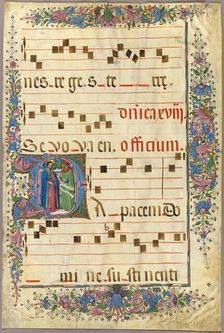 nes re ge s te rre
dnica xviii
Se vo va en officium
A pacem Do
mi ne su stinenti